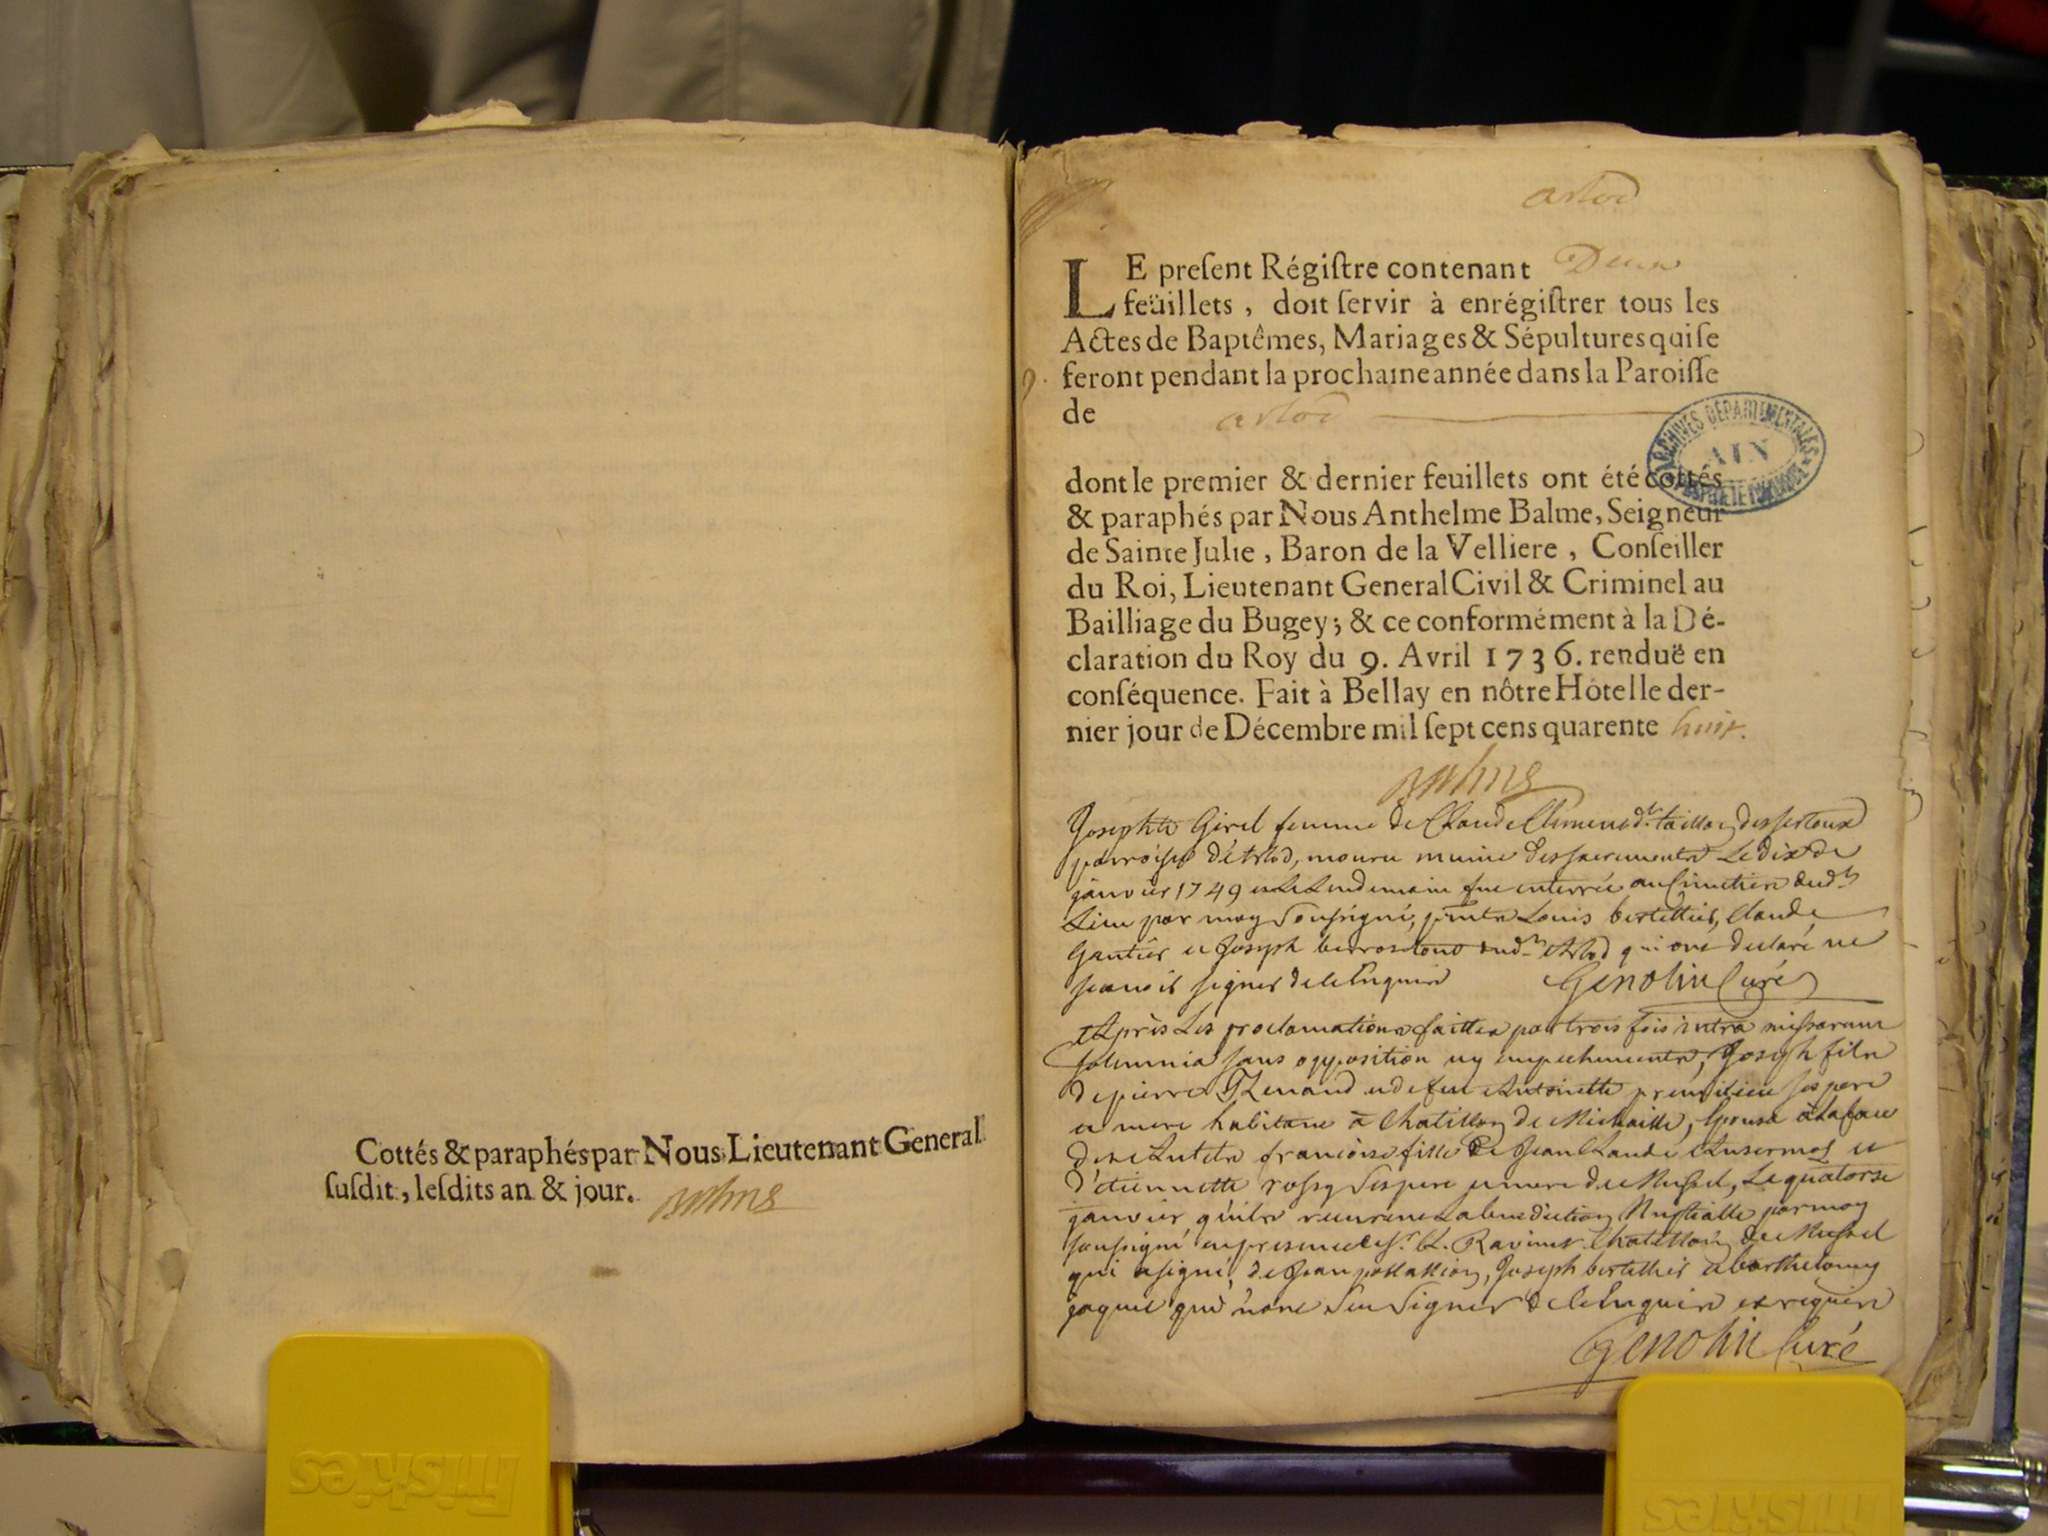 Cottés & paraphés par Nous Lieutenant General
susdit, lesdits an & jour. Balme
arlod
LE present Régistre contenant Deux
feüillets, doit servir à enrégistrer tous les
Actes de Baptêmes, Mariages & Sépultures qui se
feront pendant la prochaine année dans la Paroisse
de arlod
ARCHIVES DÉPARTEMENTALES
AIN
dont le premier & dernier feuillets ont été cottés
& paraphés par Nous Anthelme Balme, Seigneur
de Sainte Julie, Baron de la Velliere, Conseiller
du Roi, Lieutenant General Civil & Criminel au
Bailliage du Bugey; & ce conformément à la Dé-
claration du Roy du 9. Avril 1736. renduë en
conséquence. Fait à Bellay en nôtre Hôtel le der-
nier jour de Décembre mil sept cens quarente huit.
Balme
Josephte Girel femme de Claude
parroisse d'Arlod, mouru munie des sacrements Le dix de
janvier 1749 et Le Lendemain fut enterrée au Cimetiere dud.t
Lieu par moy soussigné, Louis berthetier, Claude
Gautier et Joseph dud.t Arlod qui ont declaré ne
sçavoir signer de ce Enquis Genolin Curé
Après Les proclamations faittes par trois fois intra missarum
solemnia sans opposition ny empechements, Joseph fils
de pierre Renaud et de feue Antoinette ses pere
et mere habitant à Chatillon de Michaille, Epousa à la face
des Autels françoise fille de Jean Claude et
d'etiennette rossy ses pere et mere de Mussel, Le quatorse
janvier qu'ils recurent La benediction Nuptialle par moy
soussigné en presence de s.r Ravinet Chatellain de Mussel
qui a signé, de Jean, Joseph berthetier et barthelemy
jaques qui n'ont sceu signer de ce Enquis et requis
Genolin Curé
friskies
friskies